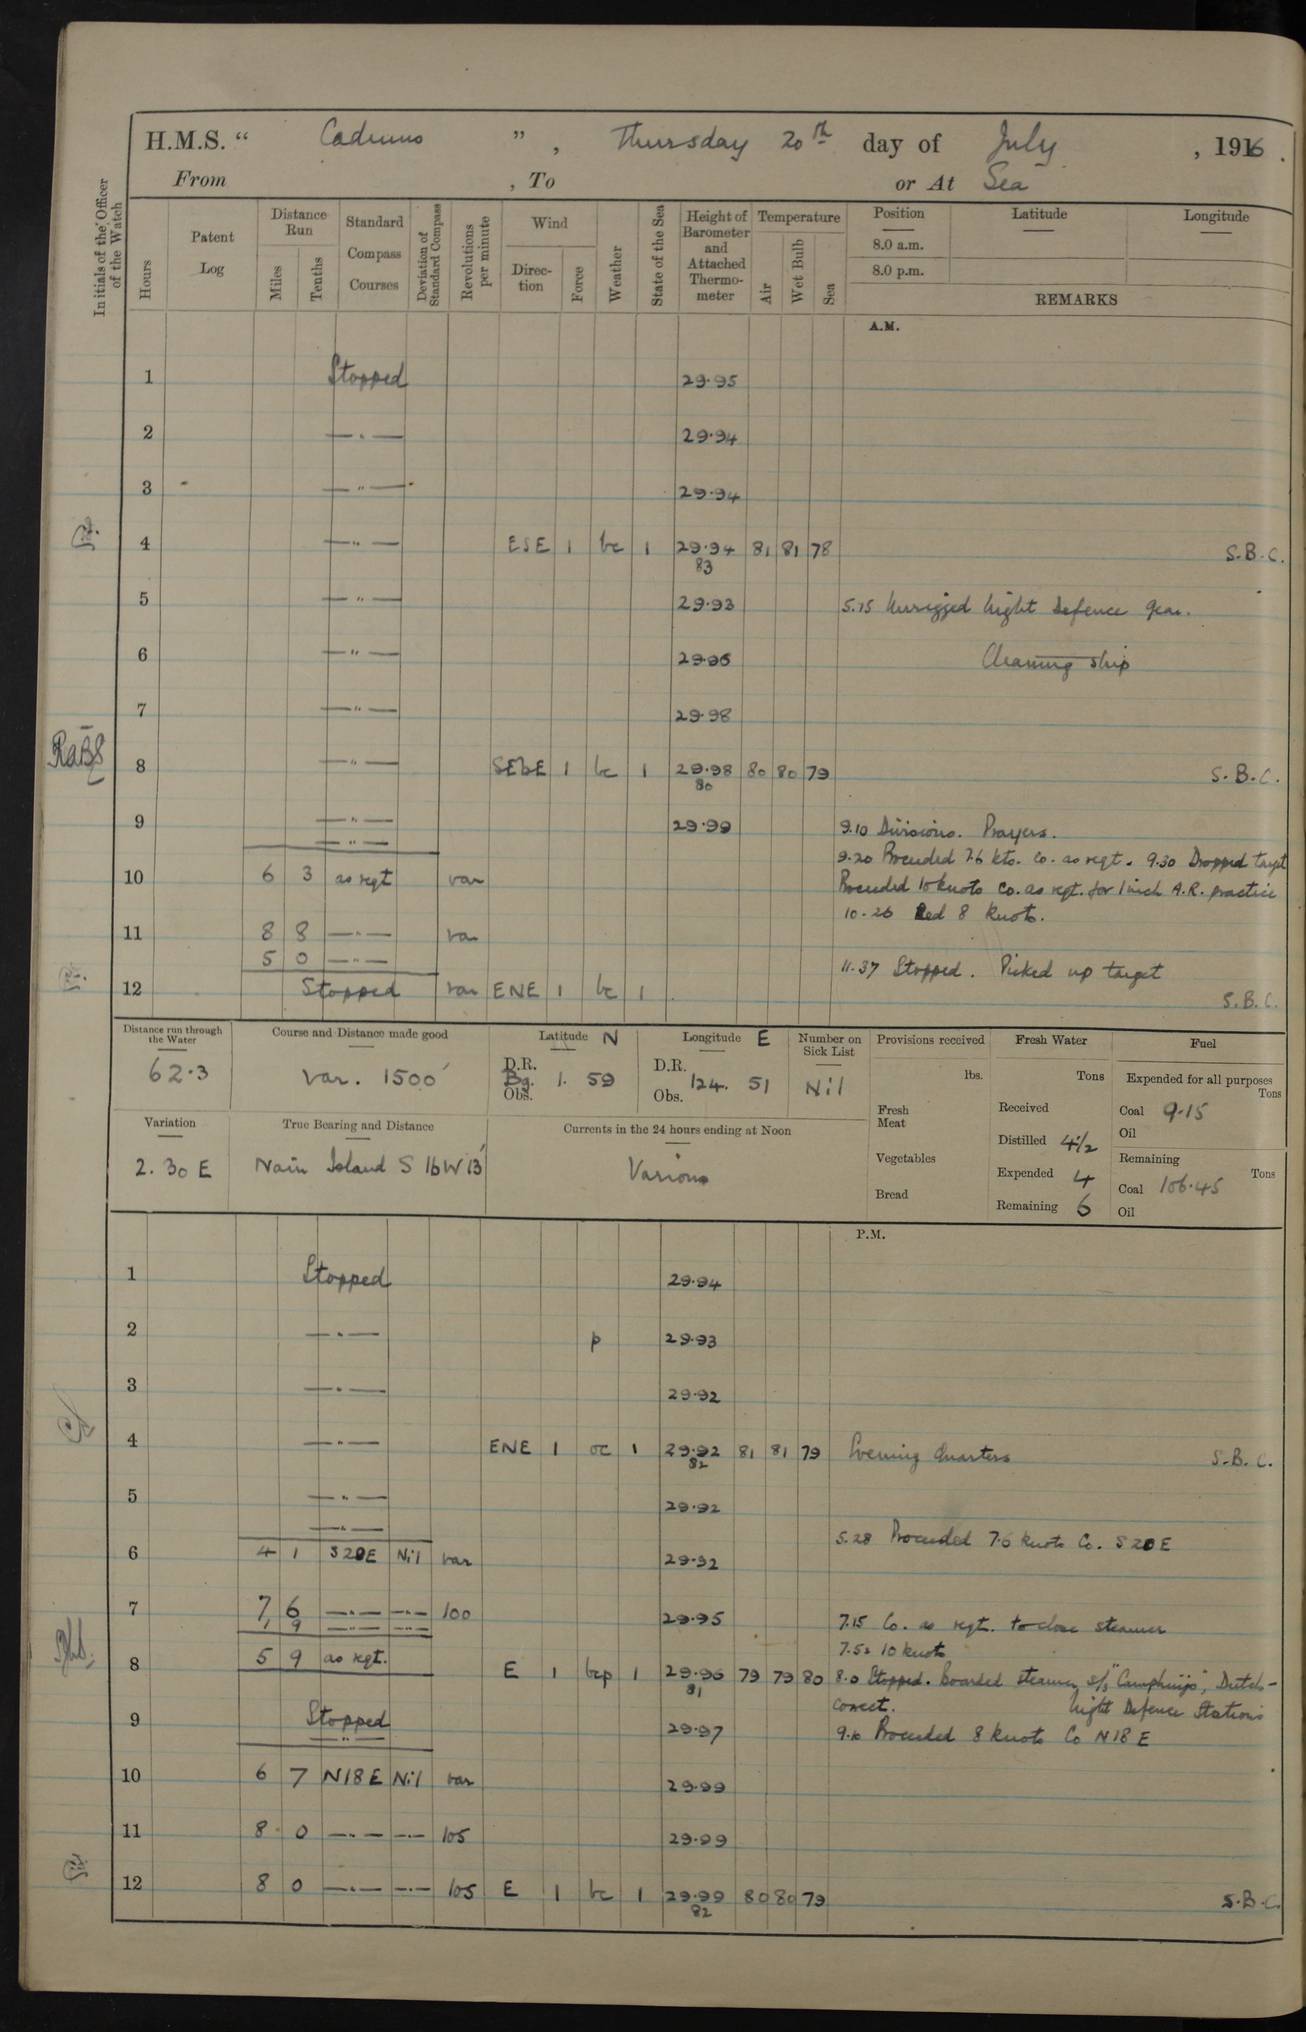 H.M.S. “ Cadmus ” , Thursday 20th day of July , 1916 .
From , To or At Sea
Initials of the Officer of the Watch
Hours Patent Log Distance Run Miles Tenths Standard Compass Courses Deviation of Standard Compass Revolutions per minute Wind Direc-tion Force Weather State of the Sea Height of Barometer and Attached Thermo-meter Temperature Air Wet Bulb Sea Position Latitude Longitude
8.0 a.m.
8.0 p.m.
REMARKS
A.M.
1 Stopped 29.95
2 — " — 29.94
3 — " — 29.94
4 — " — ESE 1 bc 1 29.94 81 81 78 S.B.C.
83
5 — " — 29.93 5.15 Unrigged Night Defence gear.
6 — " — 29.96 Cleaning ship
7 — " — 29.98
8 — " — SEbE 1 bc 1 29.98 80 80 79 S.B.C.
80
9 — " — 29.99 9.10 Divisions. Prayers.
— " —
9.20 Proceeded 7.6 kts. Co. as reqt. 9.30 Dropped target
10 6 3 as reqt var Proceeded 10 knots Co. as reqt. for 1 inch A.R. practice
10.26 Red 8 knots.
11 8 8 — " — var
5 0 — " — 11.37 Stopped. Picked up target
12 Stopped var ENE 1 bc 1 S.B.C.
Distance run through the Water Course and Distance made good Latitude N Longitude E Number on Sick List Provisions received Fresh Water Fuel
62.3 Var. 1500' D.R. Bg. Obs. 1. 59 D.R. Obs. 124. 51 Nil
lbs. Tons Expended for all purposes Tons
Fresh Meat Received Coal 9.15
Oil
Variation True Bearing and Distance Currents in the 24 hours ending at Noon
Distilled 4½
2. 30 E Nain Island S 16 W 13' Various
Vegetables Expended 4 Remaining Tons
Bread Remaining 6 Coal 106.45
Oil
P.M.
1 Stopped 29.94
2 — " — p 29.93
3 — " — 29.92
4 — " — ENE 1 oc 1 29.92 81 81 79 Evening Quarters S.B.C.
82
5 — " — 29.92
— " — 5.28 Proceeded 7.6 knots Co. S20E
6 4 1 S20E Nil var 29.92
7 7 6 — " — — " — 100 29.95 7.15 Co. as reqt. to close steamer
1 9 — " — — " — 7.52 10 knots
8 5 9 as reqt. E 1 bcp 1 29.96 79 79 80 8.0 Stopped. Boarded steamer s/s "Camphuijs", Dutch -
81 correct. Night Defence Stations
9 Stopped 29.97
— " — 9.10 Proceeded 8 knots Co N18E
10 6 7 N18E Nil var 29.99
11 8 0 — " — — " — 105 29.99
12 8 0 — " — — " — 105 E 1 bc 1 29.99 80 80 79 S.B.C.
82